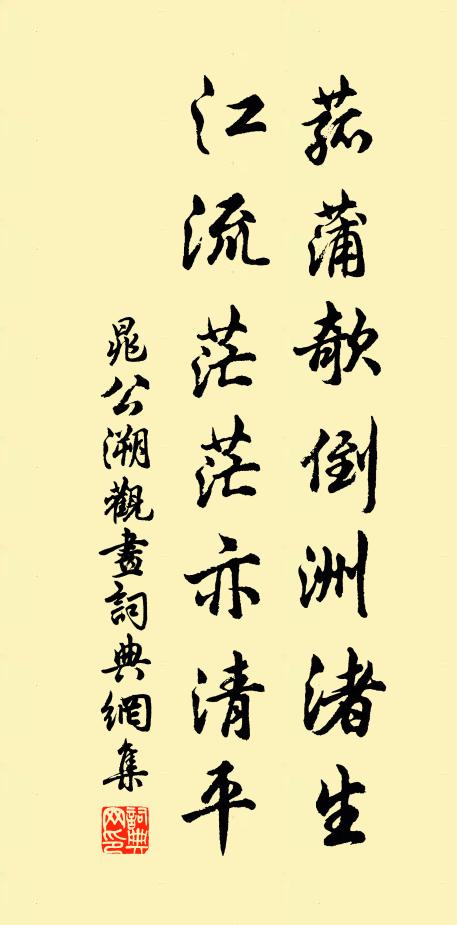 菰蒲欹倒洲渚生
江流茫茫亦清平
晁公溯觀畫詞典網集
詞典网印